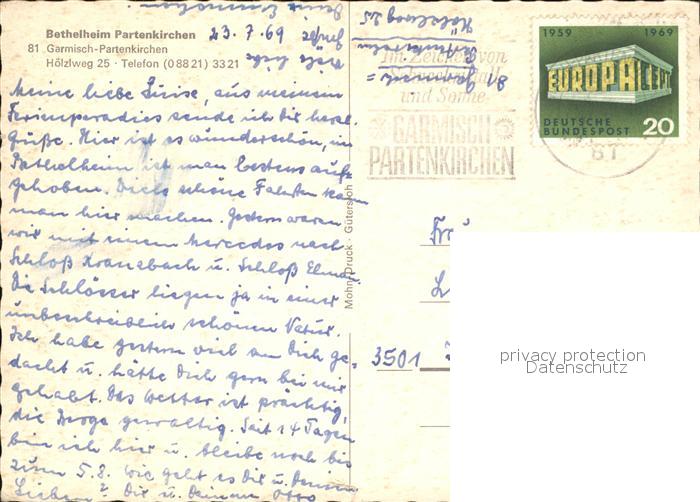 Bethelheim Partenkirchen 23. 7. 69
81 Garmisch-Partenkirchen
Hölzlweg 25 · Telefon (0 88 21) 33 21
Meine liebe Luise, aus meinem
Ferienparadies sende ich Dir herzl.
Grüße. Hier ist es wunderschön, im
Bethelheim ist man bestens auf-
gehoben. Diese schöne Fahrten kann
man hier machen. Gestern waren
wir mit einem Mercedes nach
Schloß Kranzbach u. Schloß Elmau
Die Schlösser liegen ja in einer
unbeschreiblich schönen Natur.
Ich habe gestern viel an Dich ge-
dacht u. hätte Dich gern bei mir
gehabt. Das Wetter ist prächtig,
die Berge gewaltig. Seit 14 Tagen
bin ich hier u. bleibe noch bis
zum 5.8. Wie geht es Dir u. Deinen
Lieben? Dir u. Deinem Otto
Mohn-Druck · Gütersloh
81 Garmisch =
Partenkirchen
Hölzlweg 25
Im Zeichen von
und Sonne
GARMISCH
PARTENKIRCHEN
1959 1969
EUROPA CEPT
DEUTSCHE
BUNDESPOST 20
3501
privacy protection
Datenschutz